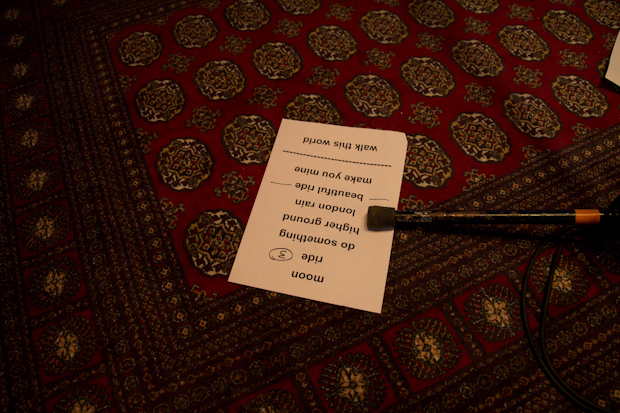 moon
ride
do something
higher ground
london rain
beautiful ride
make you mine
walk this world